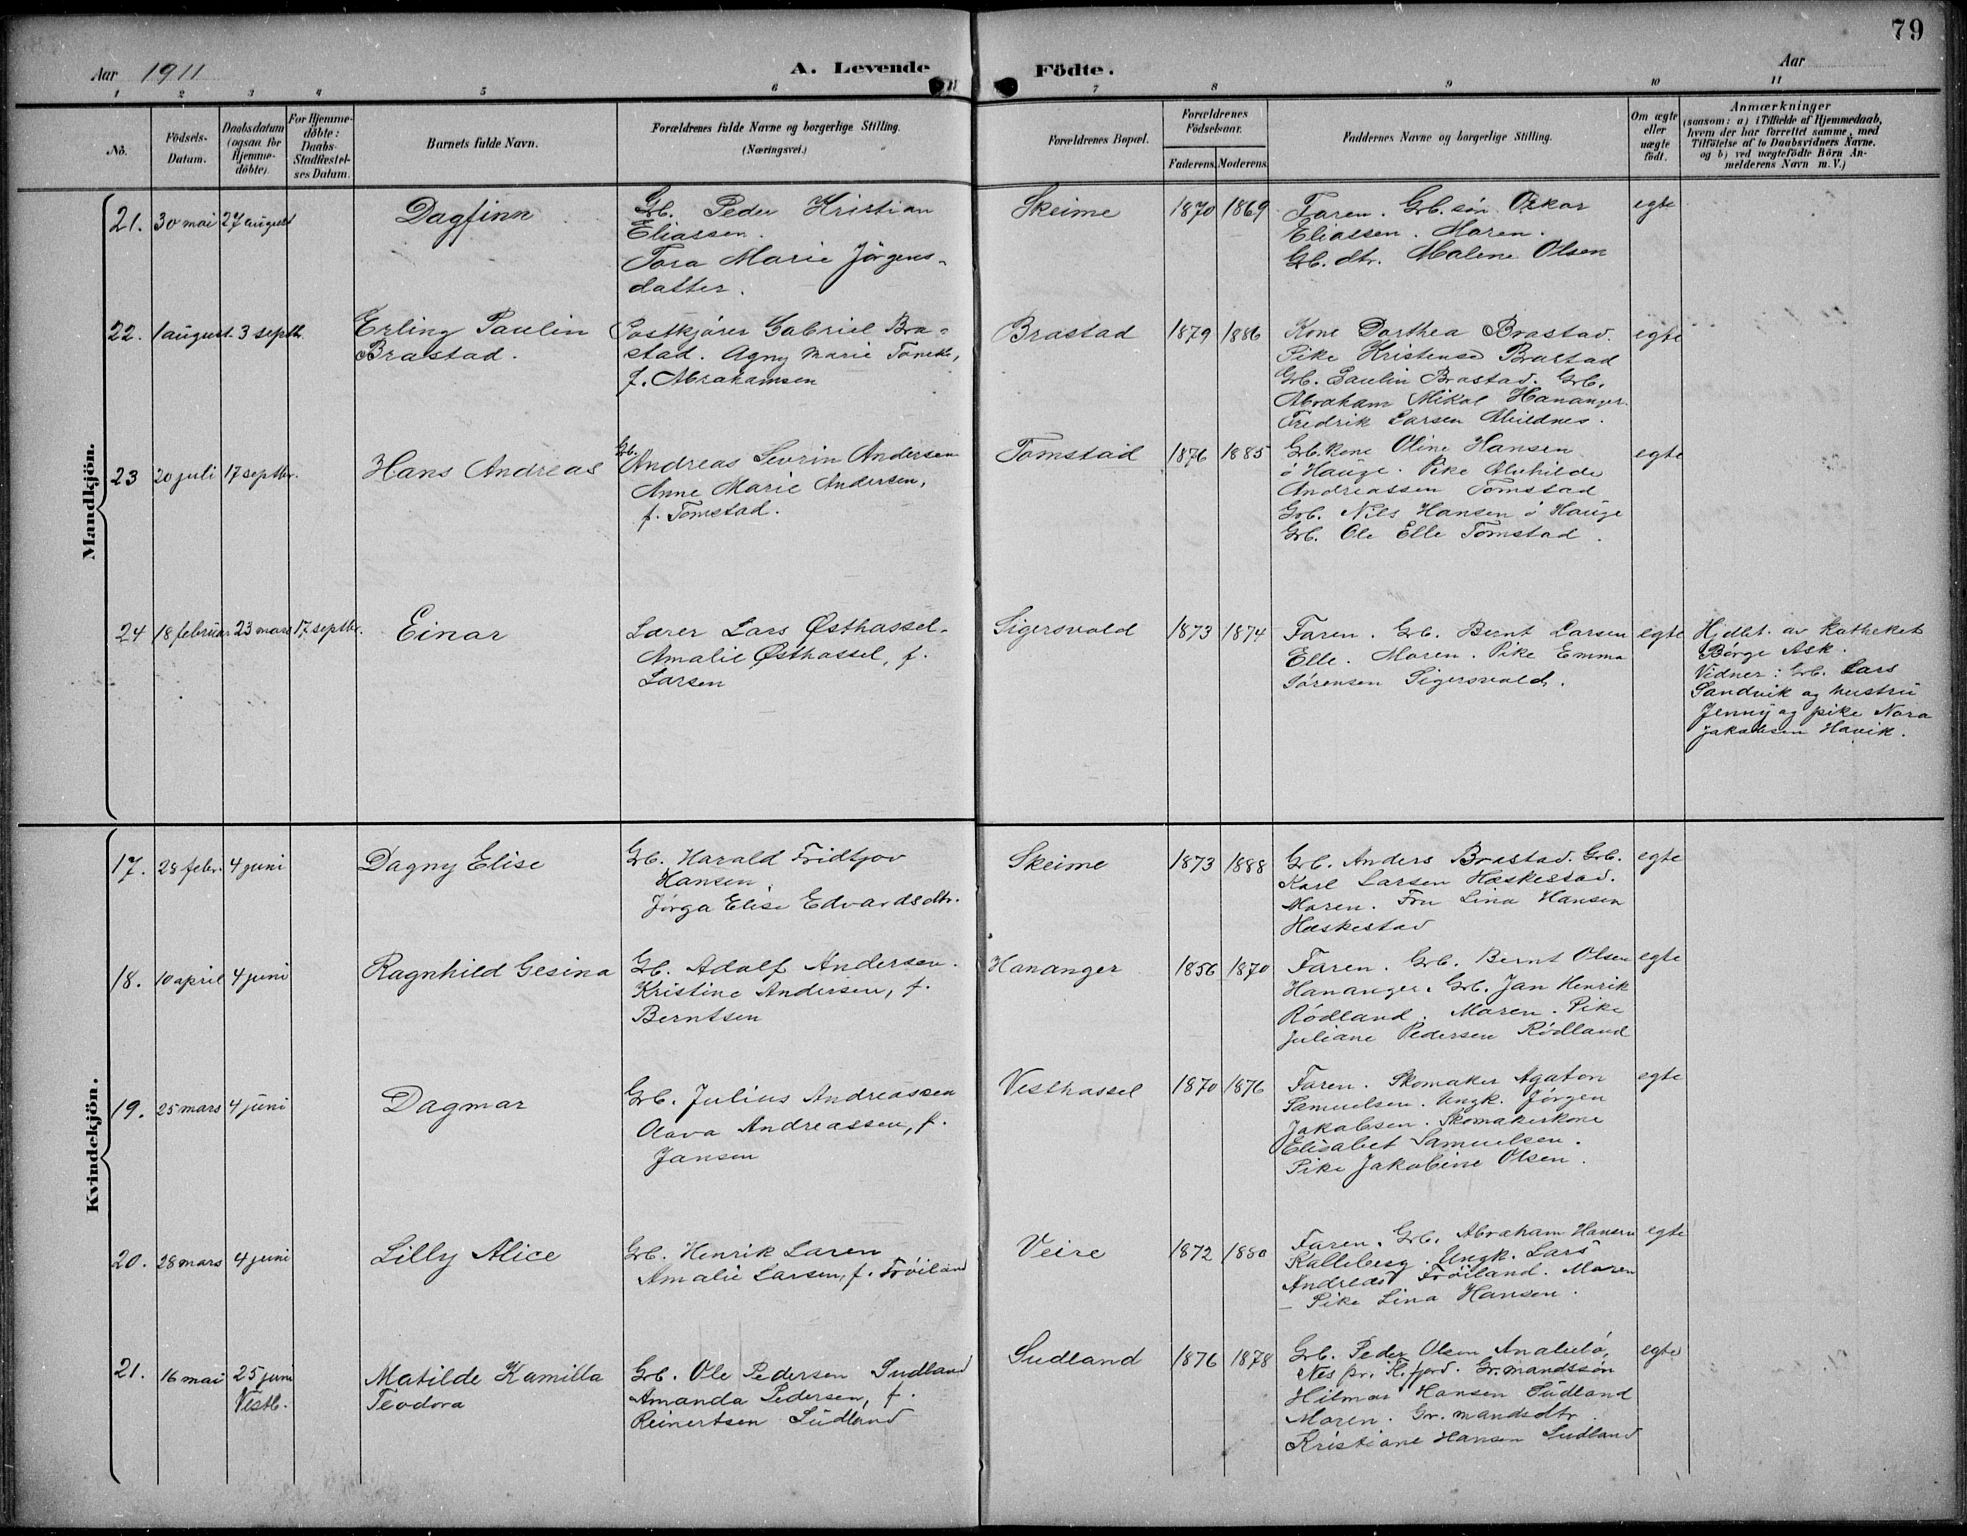 79
Aar 1911
A. Levende Födte.
Aar
1 2 3 4 5 6 7 8 9 10 11
No.
Födsels-Datum.
Daabsdatum (ogsaa for Hjemme-döbte)
For Hjemme-döbte: Daabs-Stadfæstel-ses Datum.
Barnets fulde Navn.
Forældrenes fulde Navne og borgerlige Stilling.
(Næringsvei.)
Forældrenes Bopæl.
Forældrenes Födselsaar.
Faderens. Moderens.
Faddernes Navne og borgerlige Stilling.
Om ægte eller uægte födt.
Anmærkninger
(saasom: a) i Tilfælde af Hjemmedaab,
hvem der har forrettet samme, med
Tilföielse af to Daabsvidners Navne.
og b) ved uægtefödte Börn An-
melderens Navn m. V.)
Mandkjön.
21. 30 mai 27 august
Dagfinn
Grb. Peder Kristian
Eliassen.
Tora Marie Jörgens-
datter.
Skeime
1870 1869
Faren. Grb. sön Oskar
Eliassen. Moren.
Grb. dtr. Malene Olsen
egte
22. 1 august 3 septb.
Erling Paulin
Brastad.
Postkjører Gabriel Bra-
stad. Agny Marie
f. Abrahamsen
Brastad
1879 1886
Kone Dorthea Brastad.
Pike Kristense Brastad
Grb. Paulin Brastad. Grb.
Abraham Mikal Hananger.
Fredrik Larsen
egte
23 20 juli 17 septbr.
Hans Andreas
Grb.
Andreas Sevrin Andersen
Anne Marie Andersen,
f. Tomstad.
Tomstad
1876 1885
Grb. kone Oline Hansen
ö Hauge. Pike Alvhilde
Andreassen Tomstad
Grb. Nils Hansen ö Hauge
Grb. Ole Elle Tomstad.
egte
24 18 februar 23 mars 17 septbr.
Einar
Lærer Lars Østhassel.
Amalie Østhassel, f.
Larsen
Sigersvold
1873 1874
Faren. Grb. Bernt Larsen
Elle. Moren. Pike Emma
Sörensen Sigersvold.
egte
Hjdbt. av kateket
Börge Ask.
Vidner: Grb. Lars
Sandvik og hustru
Jenny og pike Nora
Jakobsen Havik.
Kvindekjön.
17. 28 febr. 4 juni
Dagny Elise
Grb. Harald Fridtjov
Hansen.
Jörga Elise Edvardsdtr.
Skeime
1873 1888
Grb. Anders Brastad. Grb.
Karl Larsen Hæskestad.
Moren. Fru Lina Hansen
Hæskestad
egte
18. 10 april 4 juni
Ragnhild Gesina
Grb. Adolf Andersen.
Kristine Andersen, f.
Berntsen
Hananger
1856 1870
Faren. Grb. Bernt Olsen
Hananger. Grb. Jan Henrik
Rödland. Moren. Pike
Juliane Pedersen Rödland
egte
19. 25 mars 4 juni
Dagmar
Grb. Julius Andreassen
Olava Andreassen, f.
Jansen
Vesthassel
1870 1876
Faren. Skomaker Agaton
Samuelsen. Ungk. Jörgen
Jakobsen. Skomakerkone
Elisabet Samuelsen.
Pike Jakobine Olsen.
egte
20. 28 mars 4 juni
Lilly Alice
Grb. Henrik Larsen
Amalie Larsen, f. Fröiland
Veire
1872 1880
Faren. Grb. Abraham Hansen
Kalleberg. Ungk. Lars
Andreas Fröiland. Moren
– Pike Lina Hansen.
egte
21. 16 mai 25 juni
Vestb.
Matilde Kamilla
Teodora
Grb. Ole Pedersen Sudland
Amanda Pedersen, f.
Reinertsen Südland
Sudland
1876 1878
Grb. Peder Olsen
Nes pr. Fl.fjord. Gr.mandssön
Hilmar Hansen Südland
Moren. Gr. mandsdtr.
Kristiane Hansen Sudland
egte